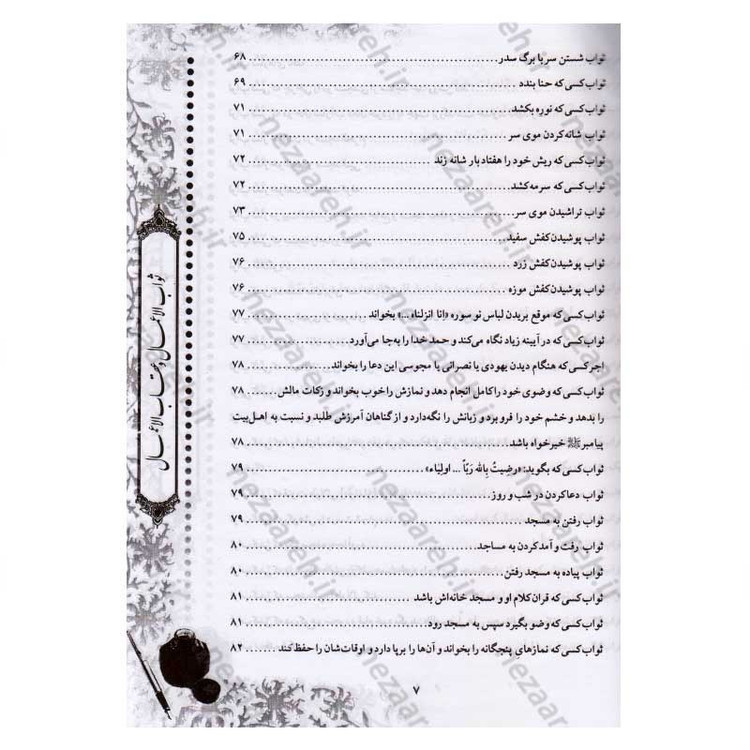 ثواب شستن سر با برگ سدر ........ ۶۸
ثواب کسی که حنا بندد ........ ۶۹
ثواب کسی که نوره بکشد ........ ۷۱
ثواب شانه کردن موی سر ........ ۷۱
ثواب کسی که ریش خود را هفتاد بار شانه زند ........ ۷۲
ثواب کسی که سرمه کشد ........ ۷۲
ثواب تراشیدن موی سر ........ ۷۳
ثواب پوشیدن کفش سفید ........ ۷۵
ثواب پوشیدن کفش زرد ........ ۷۶
ثواب پوشیدن کفش موزه ........ ۷۶
ثواب کسی که موقع بریدن لباس نو سوره «انا انزلناه ...» بخواند ۷۷
ثواب کسی که در آیینه زیاد نگاه می‌کند و حمد خدا را به‌جا می‌آورد ۷۷
اجر کسی که هنگام دیدن یهودی یا نصرانی یا مجوسی این دعا را بخواند ۷۸
ثواب کسی که وضوی خود را کامل انجام دهد و نمازش را خوب بخواند و زکات مالش ۷۸
را بدهد و خشم خود را فرو برد و زبانش را نگه‌دارد و از گناهان آمرزش طلبد و نسبت به اهل‌بیت
پیامبر ﷺ خیرخواه باشد ۷۸
ثواب کسی که بگوید: «رضِیتُ بِالله رَبّاً ... اولیاء» ۷۹
ثواب دعا کردن در شب و روز ۷۹
ثواب رفتن به مسجد ........ ۷۹
ثواب رفت و آمد کردن به مساجد ........ ۸۰
ثواب پیاده به مسجد رفتن ........ ۸۰
ثواب کسی که قرآن کلام او و مسجد خانه‌اش باشد ........ ۸۱
ثواب کسی که وضو بگیرد سپس به مسجد رود ........ ۸۱
ثواب کسی که نمازهای پنجگانه را بخواند و آن‌ها را برپا دارد و اوقات‌شان را حفظ کند ....... ۸۲
۷
ثواب الاعمال و عقاب الاعمال
nezaareh.ir